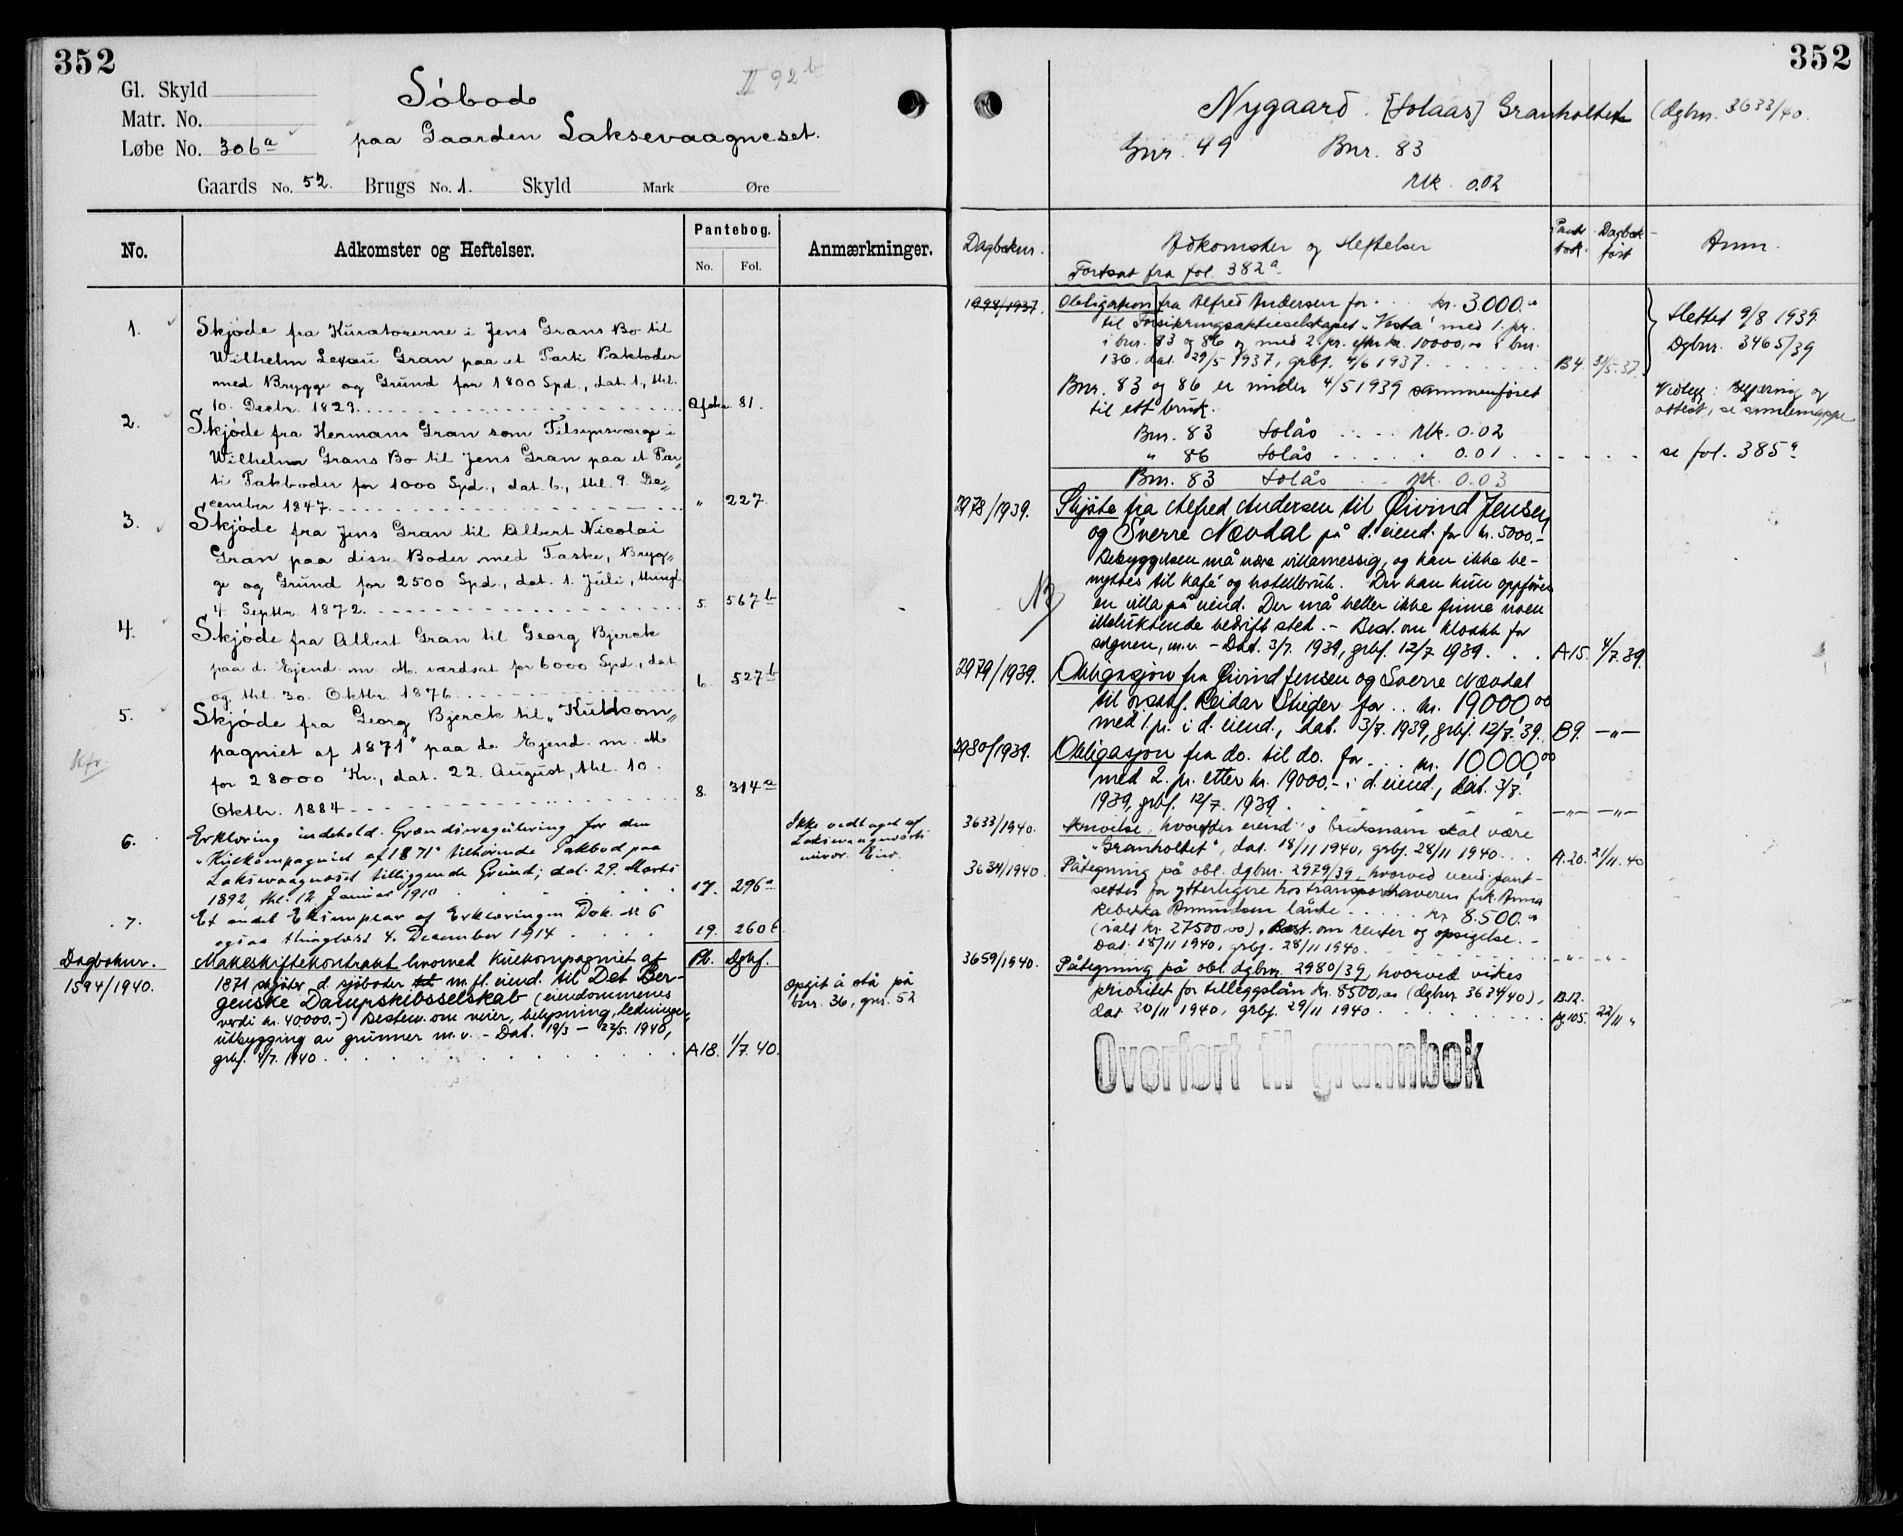 352
Gl. Skyld
Matr. No.
Løbe No. 306a
Søbod
paa Gaarden Laksevaagneset.
II 92b
Gaards No. 52. Brugs No. 1. Skyld Mark Øre
No. Adkomster og Heftelser. Pantebog. Anmærkninger.
No. Fol.
1. Skjøde fra Kuratorerne i Jens Grans Bo til
Wilhelm Gran paa et Parti Pakboder
med Brygge og Grund for 1800 Spd., dat. 1., thl.
10. Decbr. 1823. 81.
2. Skjøde fra Hermans Gran som Tilsynsværge i
Wilhelm Grans Bo til Jens Gran paa et Par„
ti Pakboder for 1000 Spd., dat. 6., thl. 9. De„
cember 1847. " 227
3. Skjøde fra Jens Gran til Albert Nicolai
Gran paa disse Boder med Taske, Bryg„
ge og Grund for 2500 Spd., dat. 1. Juli, thingl.
4. Septbr. 1872. 5. 567b
4. Skjøde fra Albert Gran til Georg Bjerck
paa d. Ejend. m. M. værdsat for 6000 Spd., dat.
og thl. 30. Oktbr. 1876. 6. 527b
5. Skjøde fra Georg Bjerck til „Kulkom„
pagniet af 1871" paa d. Ejend. m. M.
for 28000 Kr., dat. 22. August, thl. 10.
Oktbr. 1884 8. 314a
6. Erklæring indehold. Grændseregulering for den
„Kulkompagniet af 1871" tilhørende Pakbod paa
Laksevaagneset tilliggende Grund; dat. 29. Marts
1892, thl. 12 Januar 1910 17. 296a
Ikke vedtaget af
Laksevaagnesets
nuvær. Eier.
7. Et andet Eksemplar af Erklæringen Dok. № 6
ogsaa thinglæst 4. December 1914 19. 260b
Dagboknr. Makeskiftekontrakt hvorved Kulkompagniet af Pb. Dgbf.
1594/1940. 1871 skjøter d. sjøboder m. fl. eiend. til Det Ber-
genske Dampskibsselskab (eiendommenes
verdi kr. 40000.-) Bestem. om veier, belysning, ledninger,
utbygging av grunner m.v. - Dat. 19/3 - 22/5. 1940,
grbf. 4/7. 1940 A18. 1/7. 40.
Opgit å stå på
bnr. 36, gnr. 52
352
Nygaard. [Solaas] Granholtet (dgbnr. 3633/40.
Gnr. 49 Bnr. 83
Mk. 0.02
Dagboknr. Adkomster og Heftelser Pantebok. Dagbok-ført Anm.
Fortsat fra fol. 382a
1998/1937. Obligation fra Alfred Andersen for kr. 3000.-
til Forsikringsaktieselskapet „Vesta" med 1. pr.
i bnr. 83 og 86 og med 2. pr. efter kr. 10000,00 i bnr.
136, dat. 29/5 1937, grbf. 4/6 1937. B4. 31/5.37.
Slettet 9/8 1939.
Dgbnr. 3465/39
Bnr. 83 og 86 er under 4/5 1939 sammenføiet
til ett bruk.
Vedlegg: Begjæring og
attest, se samlemappe
Bnr. 83 Solås Mk. 0.02
" 86 Solås " 0.01
Bnr. 83 Solås Mk. 0.03
se fol. 385a
2978/1939. Skjøte fra Alfred Andersen til Øivind Jensen
og Sverre Nævdal på d. eiend. for kr. 5000,-
Bebyggelsen må være villamessig, og kan ikke be-
nyttes til kafé og hotellbruk. Der kan kun oppføres
en villa på eiend. Der må heller ikke finne noen
illeluktende bedrift sted. - Best. om kloakk for
søgnen, m.v. - Dat. 3/7. 1939, grbf. 12/7 1939. A15. 4/7.39.
NB
2979/1939. Obligasjon fra Øivind Jensen og Sverre Nævdal
til Reidar for kr. 19000,00
med 1. pr. i d. eiend., dat. 3/7. 1939, grbf. 12/7. 39. B9. —"—
2980/1939. Obligasjon fra do. til do. for kr. 10000,00
med 2. pr. etter kr. 19000.- i d. eiend., dat. 3/7.
1939, grbf. 12/7. 1939. —"— —"—
3633/1940. Skrivelse, hvorefter eiend's bruksnavn skal være
"Granholtet", dat. 18/11 1940, grbf. 28/11 1940. A.20. 21/11.40
3634/1940. Påtegning på obl. dgbnr. 2979/39, hvorved eiend. pant-
settes for ytterligere hos transporthaveren frk. Anna
Rebekka Amundsen lånte kr. 8.500.-
(ialt kr. 27500,00), Best. om renter og opsigelse.-
Dat. 18/11 1940, grbf. 28/11 1940. -"- -"-
3659/1940. Påtegning på obl. dgbnr. 2980/39, hvorved vikes
prioritet for tilleggslån kr. 8500,00 (dgbnr. 3634/40),
dat 20/11 1940, grbf. 29/11 1940. B12. 22/11 "
Overført til grunnbok